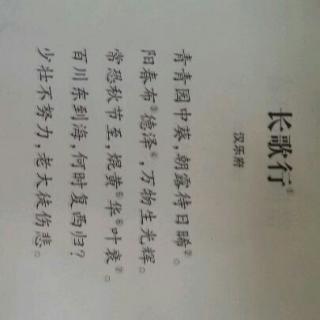 长歌行①
汉乐府
青青园中葵,朝露待日晞②。
阳春布③德泽④,万物生光辉。
常恐秋节至,焜黄⑤华⑥叶衰⑦。
百川东到海,何时复西归?
少壮不努力,老大徒伤悲。